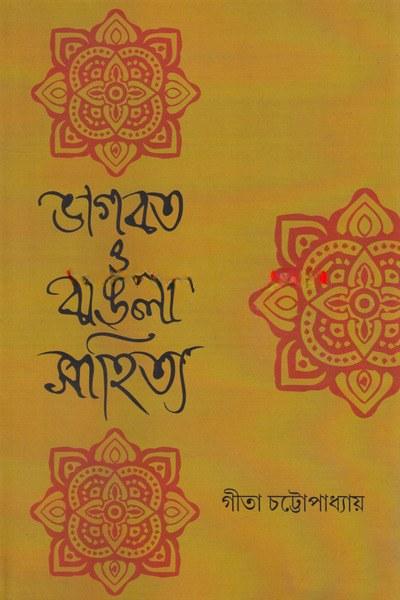 ভাগবত
ও
বাঙলা
সাহিত্য
গীতা চট্টোপাধ্যায়